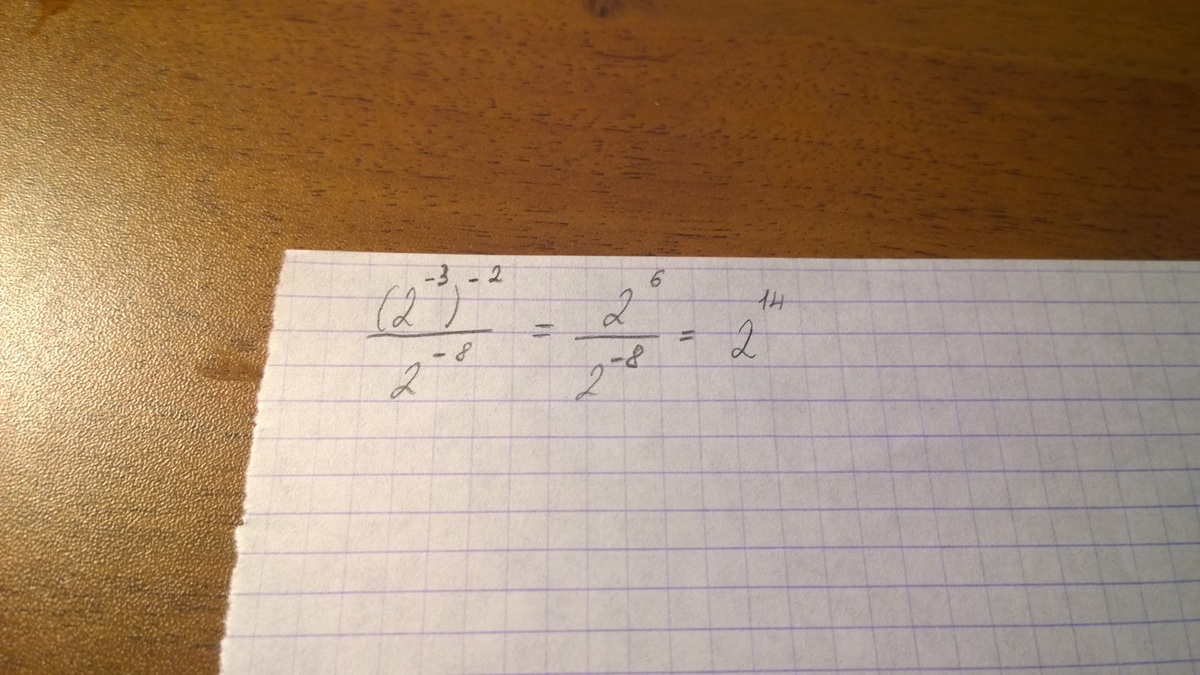 (2^-3)^-2 / 2^-8 = 2^6 / 2^-8 = 2^14